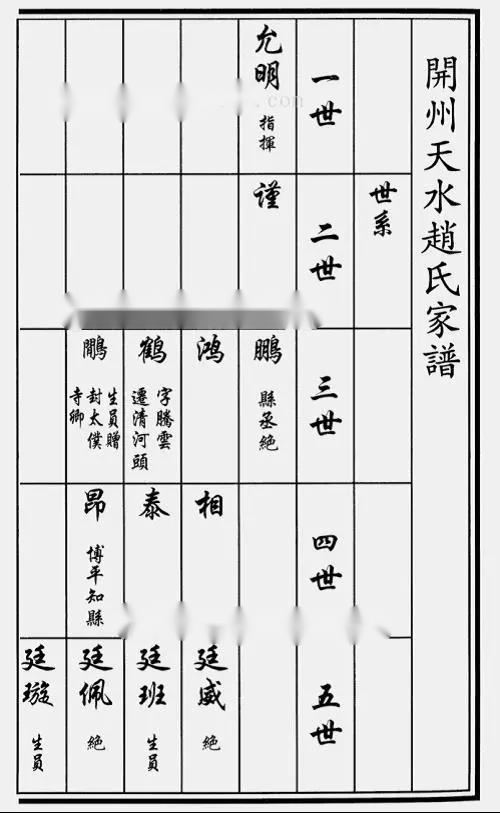 開州天水趙氏家譜
世系
一世
允明
指揮
二世
謹
三世
鵬
縣丞絕
鴻
鶴
字騰雲
遷清河頭
鷳
生員贈
封太僕
寺卿
四世
相
泰
昂
博平知縣
五世
廷威
絕
廷班
生員
廷佩
絕
廷璇
生員